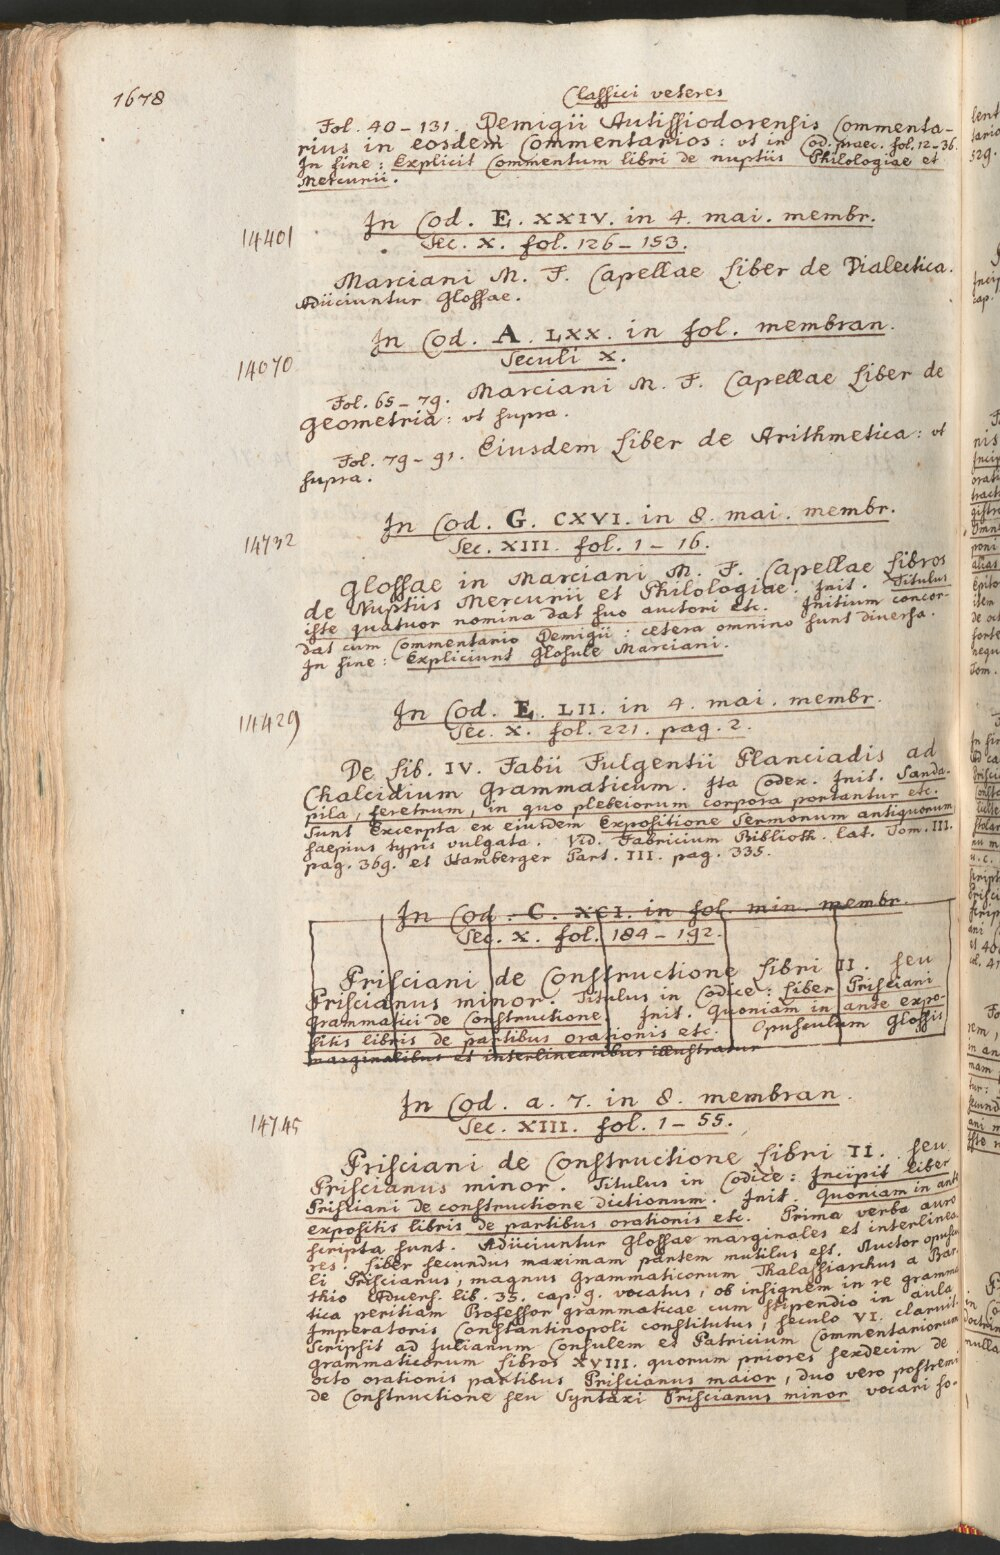 1678
Classici veteres
Fol. 40 – 131. Remigii Autissiodorensis Commenta-
rius in eosdem Commentarios: ut in Cod. praec. fol. 12–36.
In fine: Explicit Commentum libri de nuptiis Philologiae et
Mercurii.
In Cod. E. XXIV. in 4. mai. membr.
14401
Sec. X. fol. 126 – 153.
Marciani M. F. Capellae Liber de Dialectica.
Adiiciuntur Glossae.
In Cod. A. LXX. in fol. membran.
Seculi X.
14070
Fol. 65 – 79. Marciani M. F. Capellae Liber de
Geometria: ut supra.
Fol. 79 – 91. Eiusdem Liber de Arithmetica: ut
supra.
In Cod. G. CXVI. in 8. mai. membr.
14732
Sec. XIII. fol. 1 – 16.
Glossae in Marciani M. F. Capellae Libros
de Nuptiis Mercurii et Philologiae. Init. Titulus
iste quatuor nomina dat suo auctori etc. Initium concor-
dat cum Commentario Remigii: cetera omnino sunt diversa.
In fine: Expliciunt Glosule Marciani.
In Cod. E. LII. in 4. mai. membr.
14429
Sec. X. fol. 221. pag. 2.
De Lib. IV. Fabii Fulgentii Planciadis ad
Chalcidium Grammaticum. Ita Codex. Init. Sanda-
pila, feretrum, in quo plebeiorum corpora portantur etc.
Sunt Excerpta ex eiusdem Expositione Sermonum antiquorum
saepius typis vulgata. Vid. Fabricium Biblioth. lat. Tom. III.
pag. 369. et Hamberger Part. III. pag. 335.
In Cod. C. XCI. in fol. min. membr.
Sec. X. fol. 184 – 192.
Prisciani de Constructione Libri II. seu
Priscianus minor. Titulus in Codice: Liber Prisciani
Grammatici de Constructione. Init. Quoniam in ante expo-
sitis libris de partibus orationis etc. Opusculum Glossis
marginalibus et interlinearibus illustratur
In Cod. a. 7. in 8. membran.
14745
Sec. XIII. fol. 1 – 55.
Prisciani de Constructione Libri II. seu
Priscianus minor. Titulus in Codice: Incipit Liber
Prisciani de constructione dictionum. Init. Quoniam in ante
expositis libris de partibus orationis etc. Prima verba auro
scripta sunt. Adiiciuntur Glossae marginales et interlinea-
res. Liber secundus maximam partem mutilus est. Auctor opuscu-
li Priscianus, magnus Grammaticorum Thalassiarchus a Bar-
thio Advers. lib. 35. cap. 9. vocatus, ob insignem in re gramma-
tica peritiam Professor grammaticae cum stipendio in aula
Imperatoris Constantinopoli constitutus, seculo VI. claruit.
Scripsit ad Julianum Consulem et Patricium Commentariorum
grammaticorum Libros XVIII. quorum priores sexdecim de
octo orationis partibus Priscianus maior, duo vero postremi
de Constructione seu Syntaxi Priscianus minor vocari so-